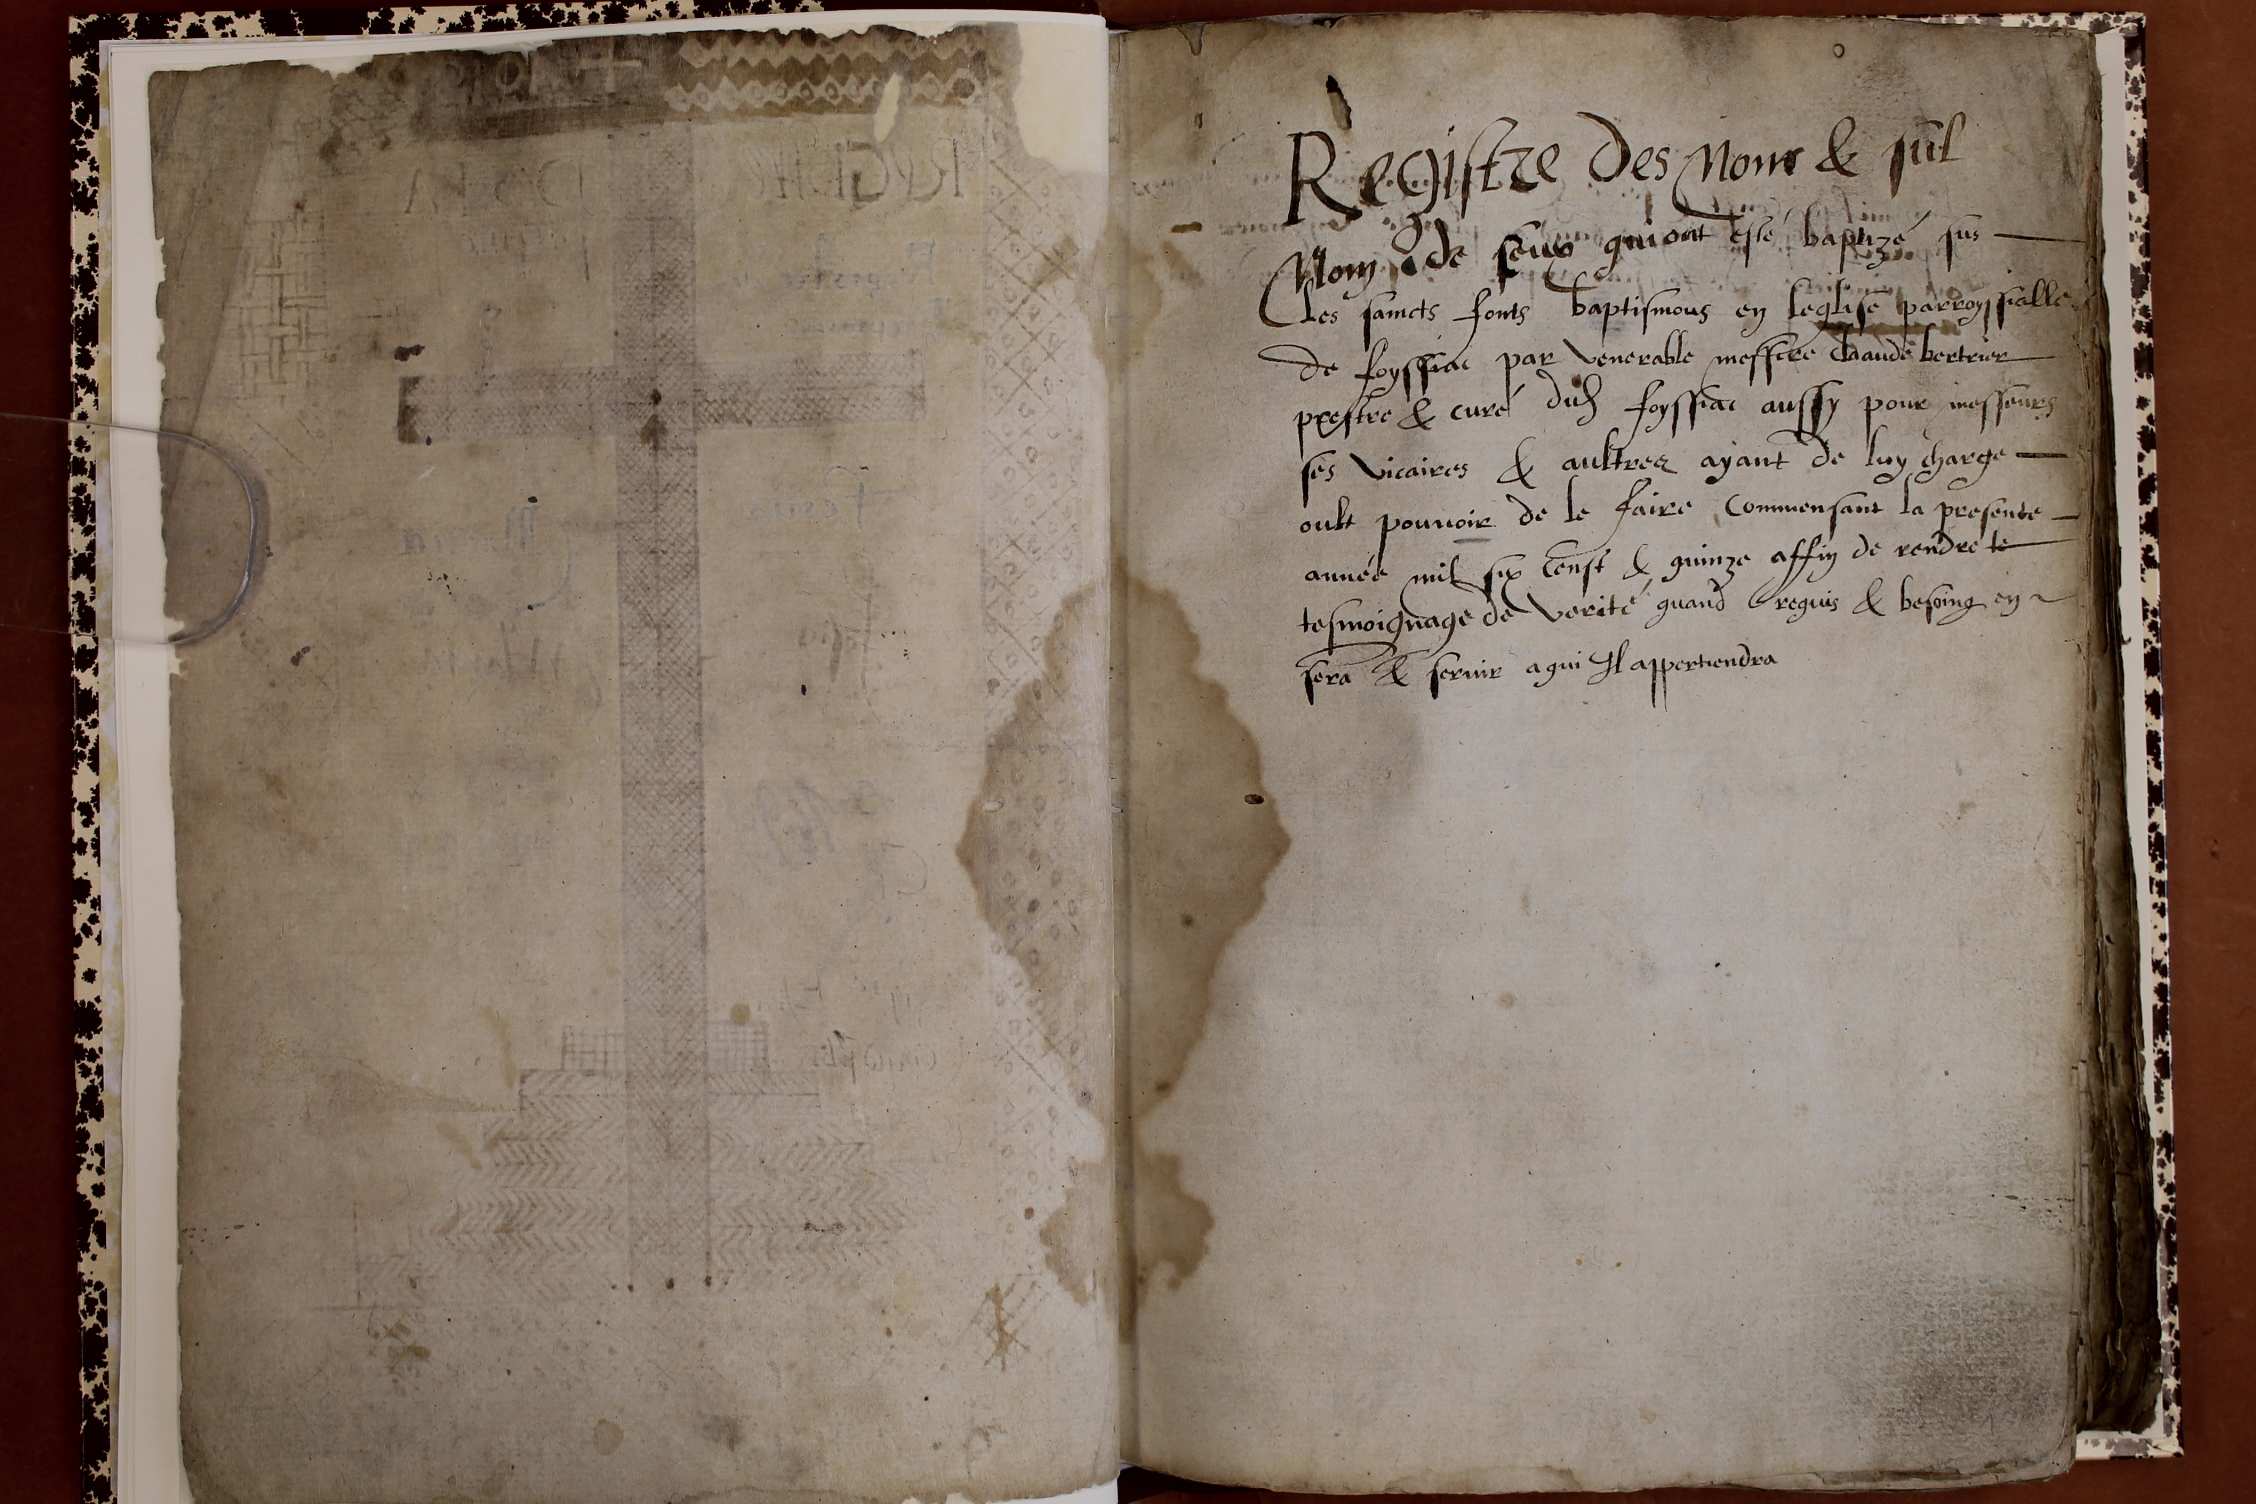 Registre des Nom & sur
Nom de seux qui ont esté baptizé sus
les saincts fonts baptismous en leglise parroyssialle
de foyssiac par venerable messire claude bertrier
prestre & curé dud foyssiac aussy pour messeurs
ses vicaires & aultres ayant de luy charge
oult pouuoir de le faire commensant la presente
année mil six censt & quinze affin de rendre te
tesmoignage de verité quand requis & besoing en
sera & seruir a qui Il appertiendra